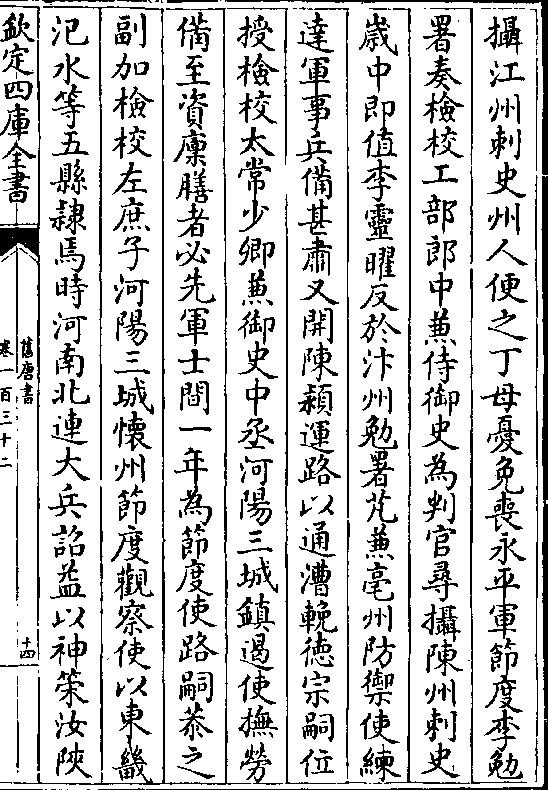 攝江州刺史州人便之丁母憂免喪永平軍節度李勉
署奏檢校工部郎中兼侍御史為判官尋攝陳州刺史
歲中即值李靈曜反於汴州勉署芃兼亳州防禦使練
達軍事兵備甚肅又開陳潁運路以通漕輓德宗嗣位
授檢校太常少卿兼御史中丞河陽三城鎮遏使撫勞
備至資廩膳者必先軍士間一年為節度使路嗣恭之
副加檢校左庶子河陽三城懷州節度觀察使以東畿
汜水等五縣隸焉時河南北連大兵詔益以神策汝陝
欽定四庫全書
舊唐書
卷一百三十二
十四